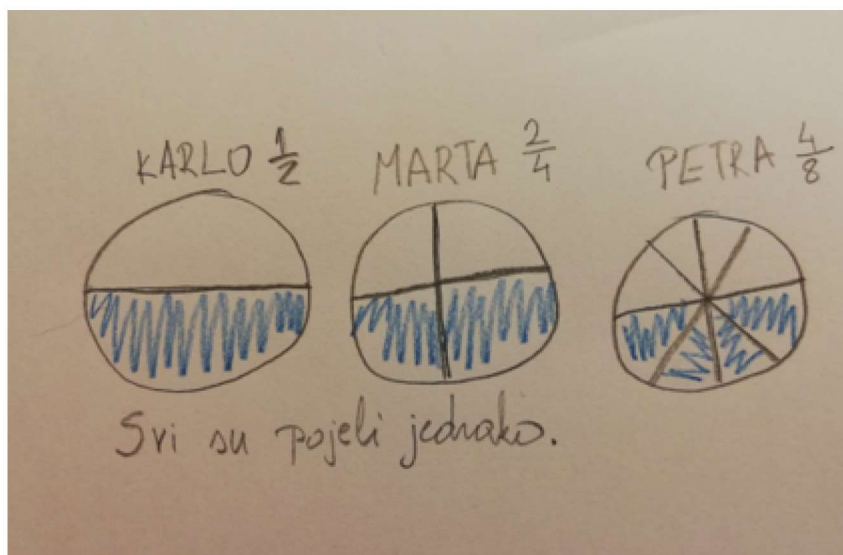 KARLO 1/2 MARTA 2/4 PETRA 4/8
Svi su pojeli jednako.